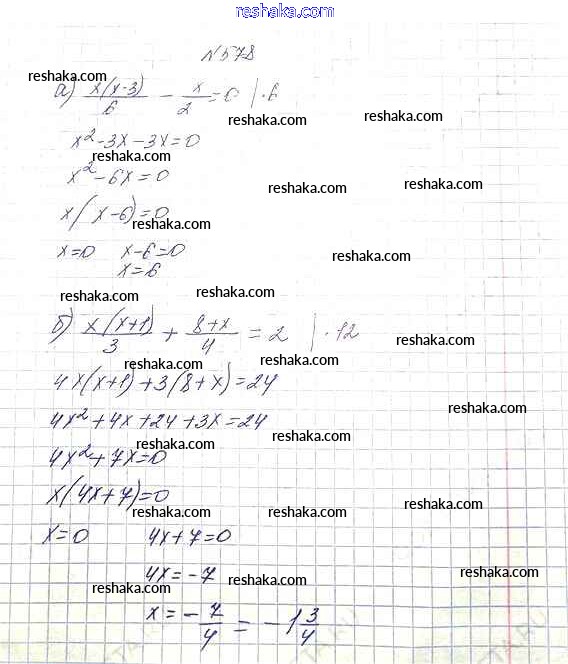 www.reshaka.com
№578
reshaka.com
а) x(x-3)/6 - x/2 = 0 | ·6
reshaka.com
reshaka.com
x² - 3x - 3x = 0
reshaka.com
x² - 6x = 0
reshaka.com
reshaka.com
x(x-6) = 0
reshaka.com
x = 0 x - 6 = 0
reshaka.com
x = 6
reshaka.com
reshaka.com
б) x(x+1)/3 + 8+x/4 = 2 | ·12
reshaka.com
reshaka.com
reshaka.com
4x(x+1) + 3(8+x) = 24
reshaka.com
4x² + 4x + 24 + 3x = 24
reshaka.com
reshaka.com
4x² + 7x = 0
x(4x+7) = 0
reshaka.com
reshaka.com
reshaka.com
x = 0 4x + 7 = 0
4x = -7
reshaka.com
reshaka.com
reshaka.com
x = - 7/4 = - 1 3/4